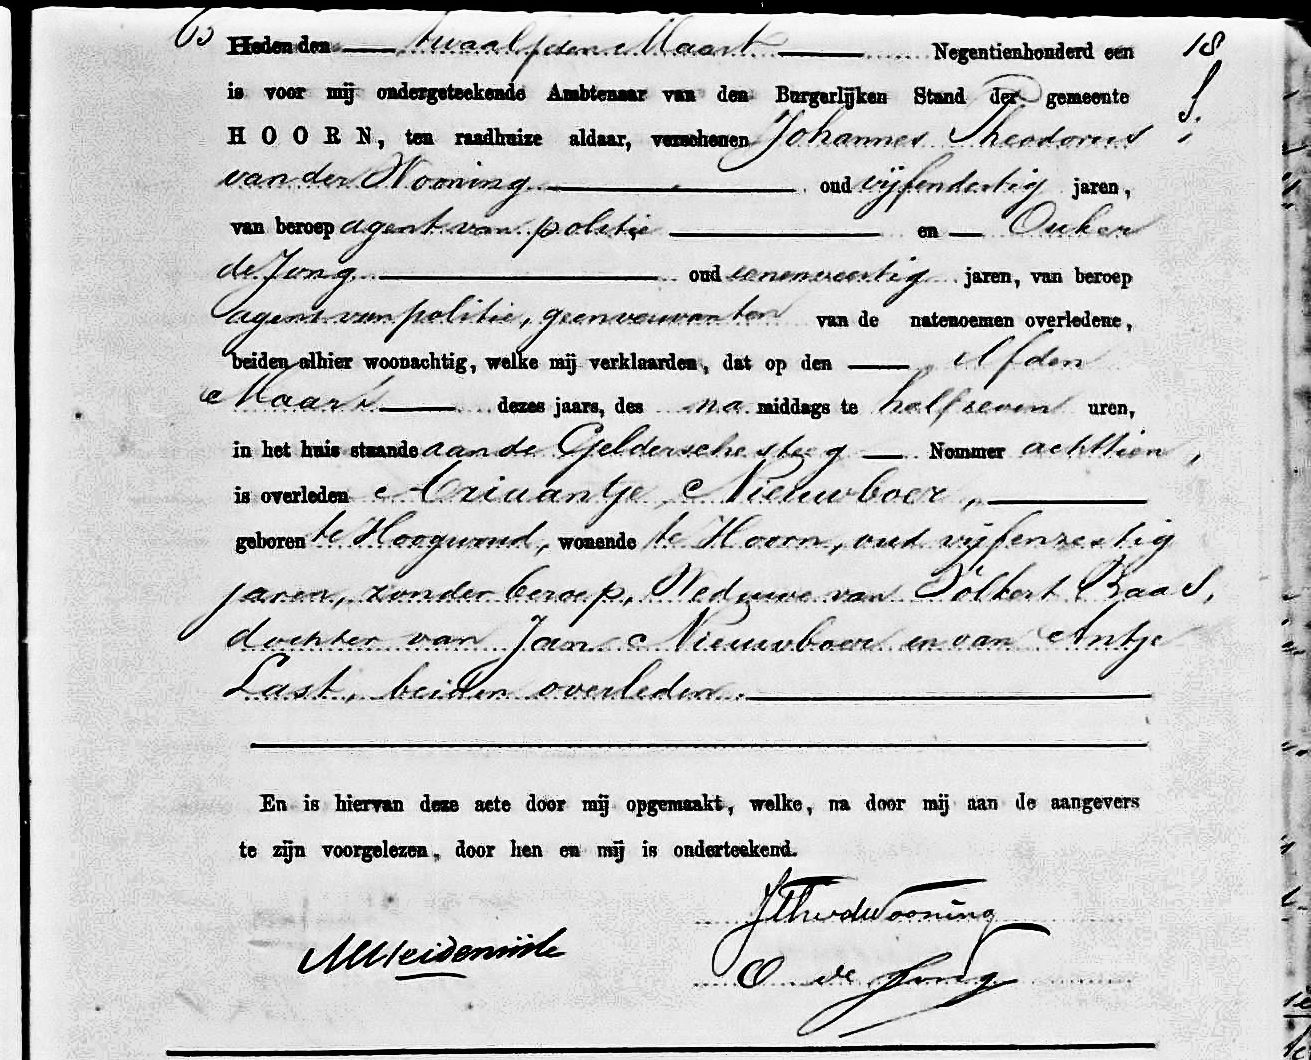 65 Heden den twaalfden Maart Negentienhonderd een 18
is voor mij ondergeteekende Ambtenaar van den Burgerlijken Stand der gemeente
HOORN, ten raadhuize aldaar, verschenen Johannes Theodorus
van der Wooning oud vijfendertig jaren,
van beroep agent van politie en Ouker
de Jong oud eenenveertig jaren, van beroep
agent van politie, geen verwanten van de natenoemen overledene,
beiden alhier woonachtig, welke mij verklaarden, dat op den elfden
Maart dezes jaars, des na middags te half zeven uren,
in het huis staande aan de Geldersche steeg Nommer achttien,
is overleden Ariaantje Nieuwboer,
geboren te Hoogwoud, wonende te Hoorn, oud vijfenzestig
jaren, zonder beroep, Weduwe van Volkert Baas,
dochter van Jan Nieuwboer en van Antje
Last, beiden overleden.
En is hiervan deze acte door mij opgemaakt, welke, na door mij aan de aangevers
te zijn voorgelezen, door hen en mij is onderteekend.
JThvdWooning
O de Jong